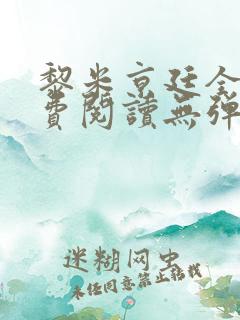 黎米京廷全
費閱讀無彈
迷糊网虫
未经同意禁止转载